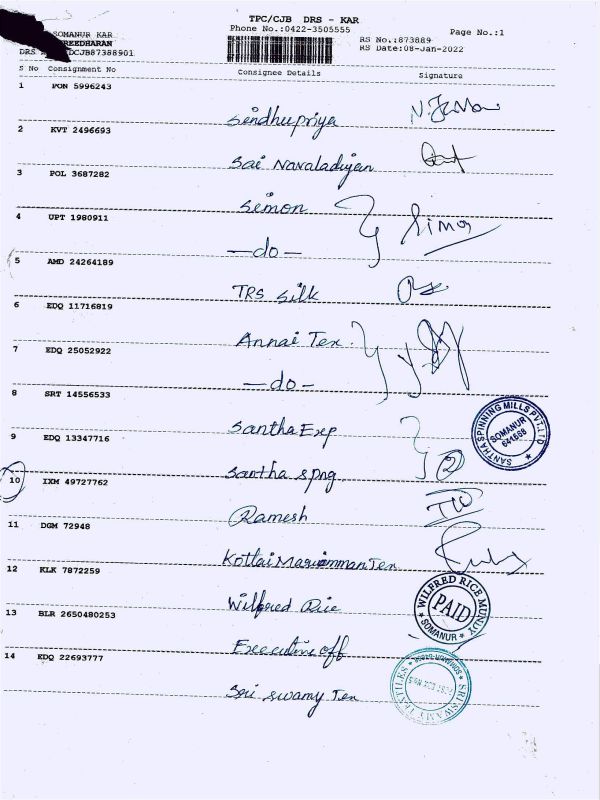 TPC/CJB DRS - KAR
Phone No.:0422-3505555
Page No.:1
SOMANUR KAR
REEDHARAN
DRS
DCJB87388901
RS No.:873889
RS Date:08-Jan-2022
S No Consignment No Consignee Details Signature
1 PON 5996243
Sindhupriya
2 KVT 2496693
Sai Navaladiyan
3 POL 3687282
Simon
4 UPT 1980911
-do-
5 AMD 24264189
TRS Silk
6 EDQ 11716819
Annai Tex.
7 EDQ 25052922
-do-
8 SRT 14556533
Santha Exp
SANTHA SPINNING MILLS PVT.LTD
SOMANUR
641668
9 EDQ 13347716
Santha spng
2
10 IXM 49727762
Ramesh
11 DGM 72948
Kottai Mariamman Tex
12 KLK 7872259
Wilfred Rice
WILFRED RICE MUNDY
PAID
SOMANUR
13 BLR 2650480253
Executive off
14 EDQ 22693777
Sri Swamy Tex
SRI SWAMY TEXTILES